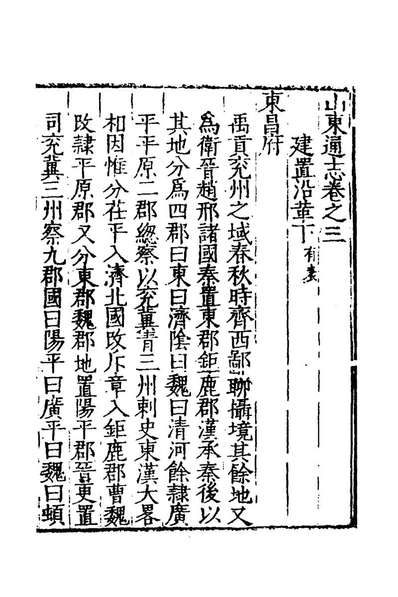 山東通志卷之三
建置沿革下有表
東昌府
禹貢兖州之域春秋時齊西鄙聊攝境其餘地又
爲衛晉趙邢諸國秦置東郡鉅鹿郡漢承秦後以
其地分爲四郡曰東曰濟陰曰魏曰清河餘隸廣
平平原二郡總察以兖冀青三州刺史東漢大畧
相因惟分茌平入濟北國改斥章入鉅鹿郡曹魏
改隸平原郡又分東郡魏郡地置陽平郡晉更置
司兖冀三州察九郡國曰陽平曰廣平曰魏曰頓